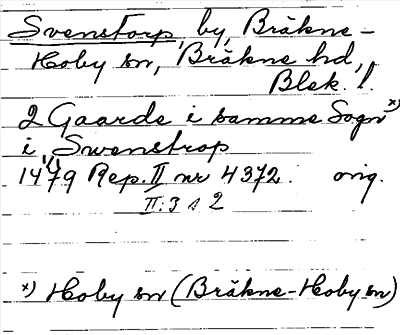 Svenstorp, by, Bräkne-
Hoby sn, Bräkne hd,
Blek. l.
2 Gaarde i samme Sogn x)
i Swenstrop
1479 Rep. II nr 4372. orig.
II:3 s 2
x) Hoby sn (Bräkne-Hoby sn)